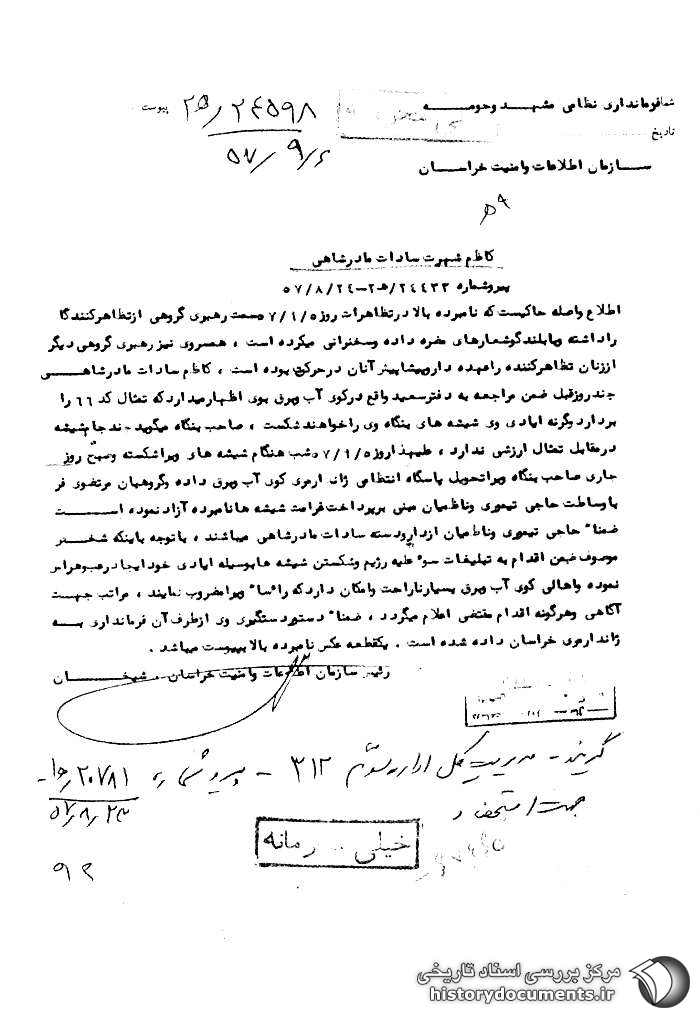 فرمانداری نظامی مشهد وحومه
تاریخ
پیوست
۲۴۵۹۸/۲ه
۵۷/۹/۶
سازمان اطلاعات وامنیت خراسان
۵۹
کاظم شهرت سادات مادرشاهی
پیروشماره ۲۴۴۳۳/۲ه‍-۵۷/۸/۲۴
اطلاع واصله حاکیست که نامبرده بالا درتظاهرات روز ۷/۹/۵ سمت رهبری گروهی ازتظاهرکنندگا
راداشته وبابلندگوشعارهای مضره داده وسخنرانی میکرده است ، همسروی نیز رهبری گروهی دیگر
اززنان تظاهرکننده راعهده دارو پیشاپیش آنان درحرکت بوده است ، کاظم سادات مادرشاهی
چندروزقبل ضمن مراجعه به دفترسعید واقع درکوی آب وبرق بوی اظهارمیداردکه تمثال کد ۶۶ را
برداردوگرنه ایادی وی شیشه های بنگاه وی راخواهندشکست ، صاحب بنگاه میگوید چندجام شیشه
درمقابل تمثال ارزشی ندارد ، علیهذا روز ۷/۹/۵ شب هنگام شیشه های ویراشکسته وصبح روز
جاری صاحب بنگاه ویراتحویل پاسگاه انتظامی ژاندارمری کوی آب وبرق داده وگروهبان مرتضوی فر
با وساطت حاجی تیموری وناظمیان مبنی برپرداخت غرامت شیشه ها نامبرده آزاد نموده است
ضمنا" حاجی تیموری وناظمیان ازدارودسته سادات مادرشاهی میباشند ، باتوجه باینکه شخص
موصوف ضمن اقدام به تبلیغات سوء علیه رژیم وشکستن شیشه هابوسیله ایادی خود ایجاد رعب وهراس
نموده واهالی کوی آب وبرق بسیارناراحت وامکان داردکه راسا" ویرامضروب نمایند ، مراتب جهت
آگاهی وهرگونه اقدام مقتضی اعلام میگردد ، ضمنا" دستوردستگیری وی ازطرف آن فرمانداری به
ژاندارمری خراسان داده شده است . یکقطعه عکس نامبرده بالا بپیوست میباشد .
رئیس سازمان اطلاعات وامنیت خراسان . شیخان
گیرنده - مدیریت کل اداره سوم ۳۱۲ - پیرو شماره ۲۰۷۸۱
۵۷/۸/۲۳
جهت استحضار
خیلی محرمانه
۹۲
مرکز بررسی اسناد تاریخی
historydocuments.ir